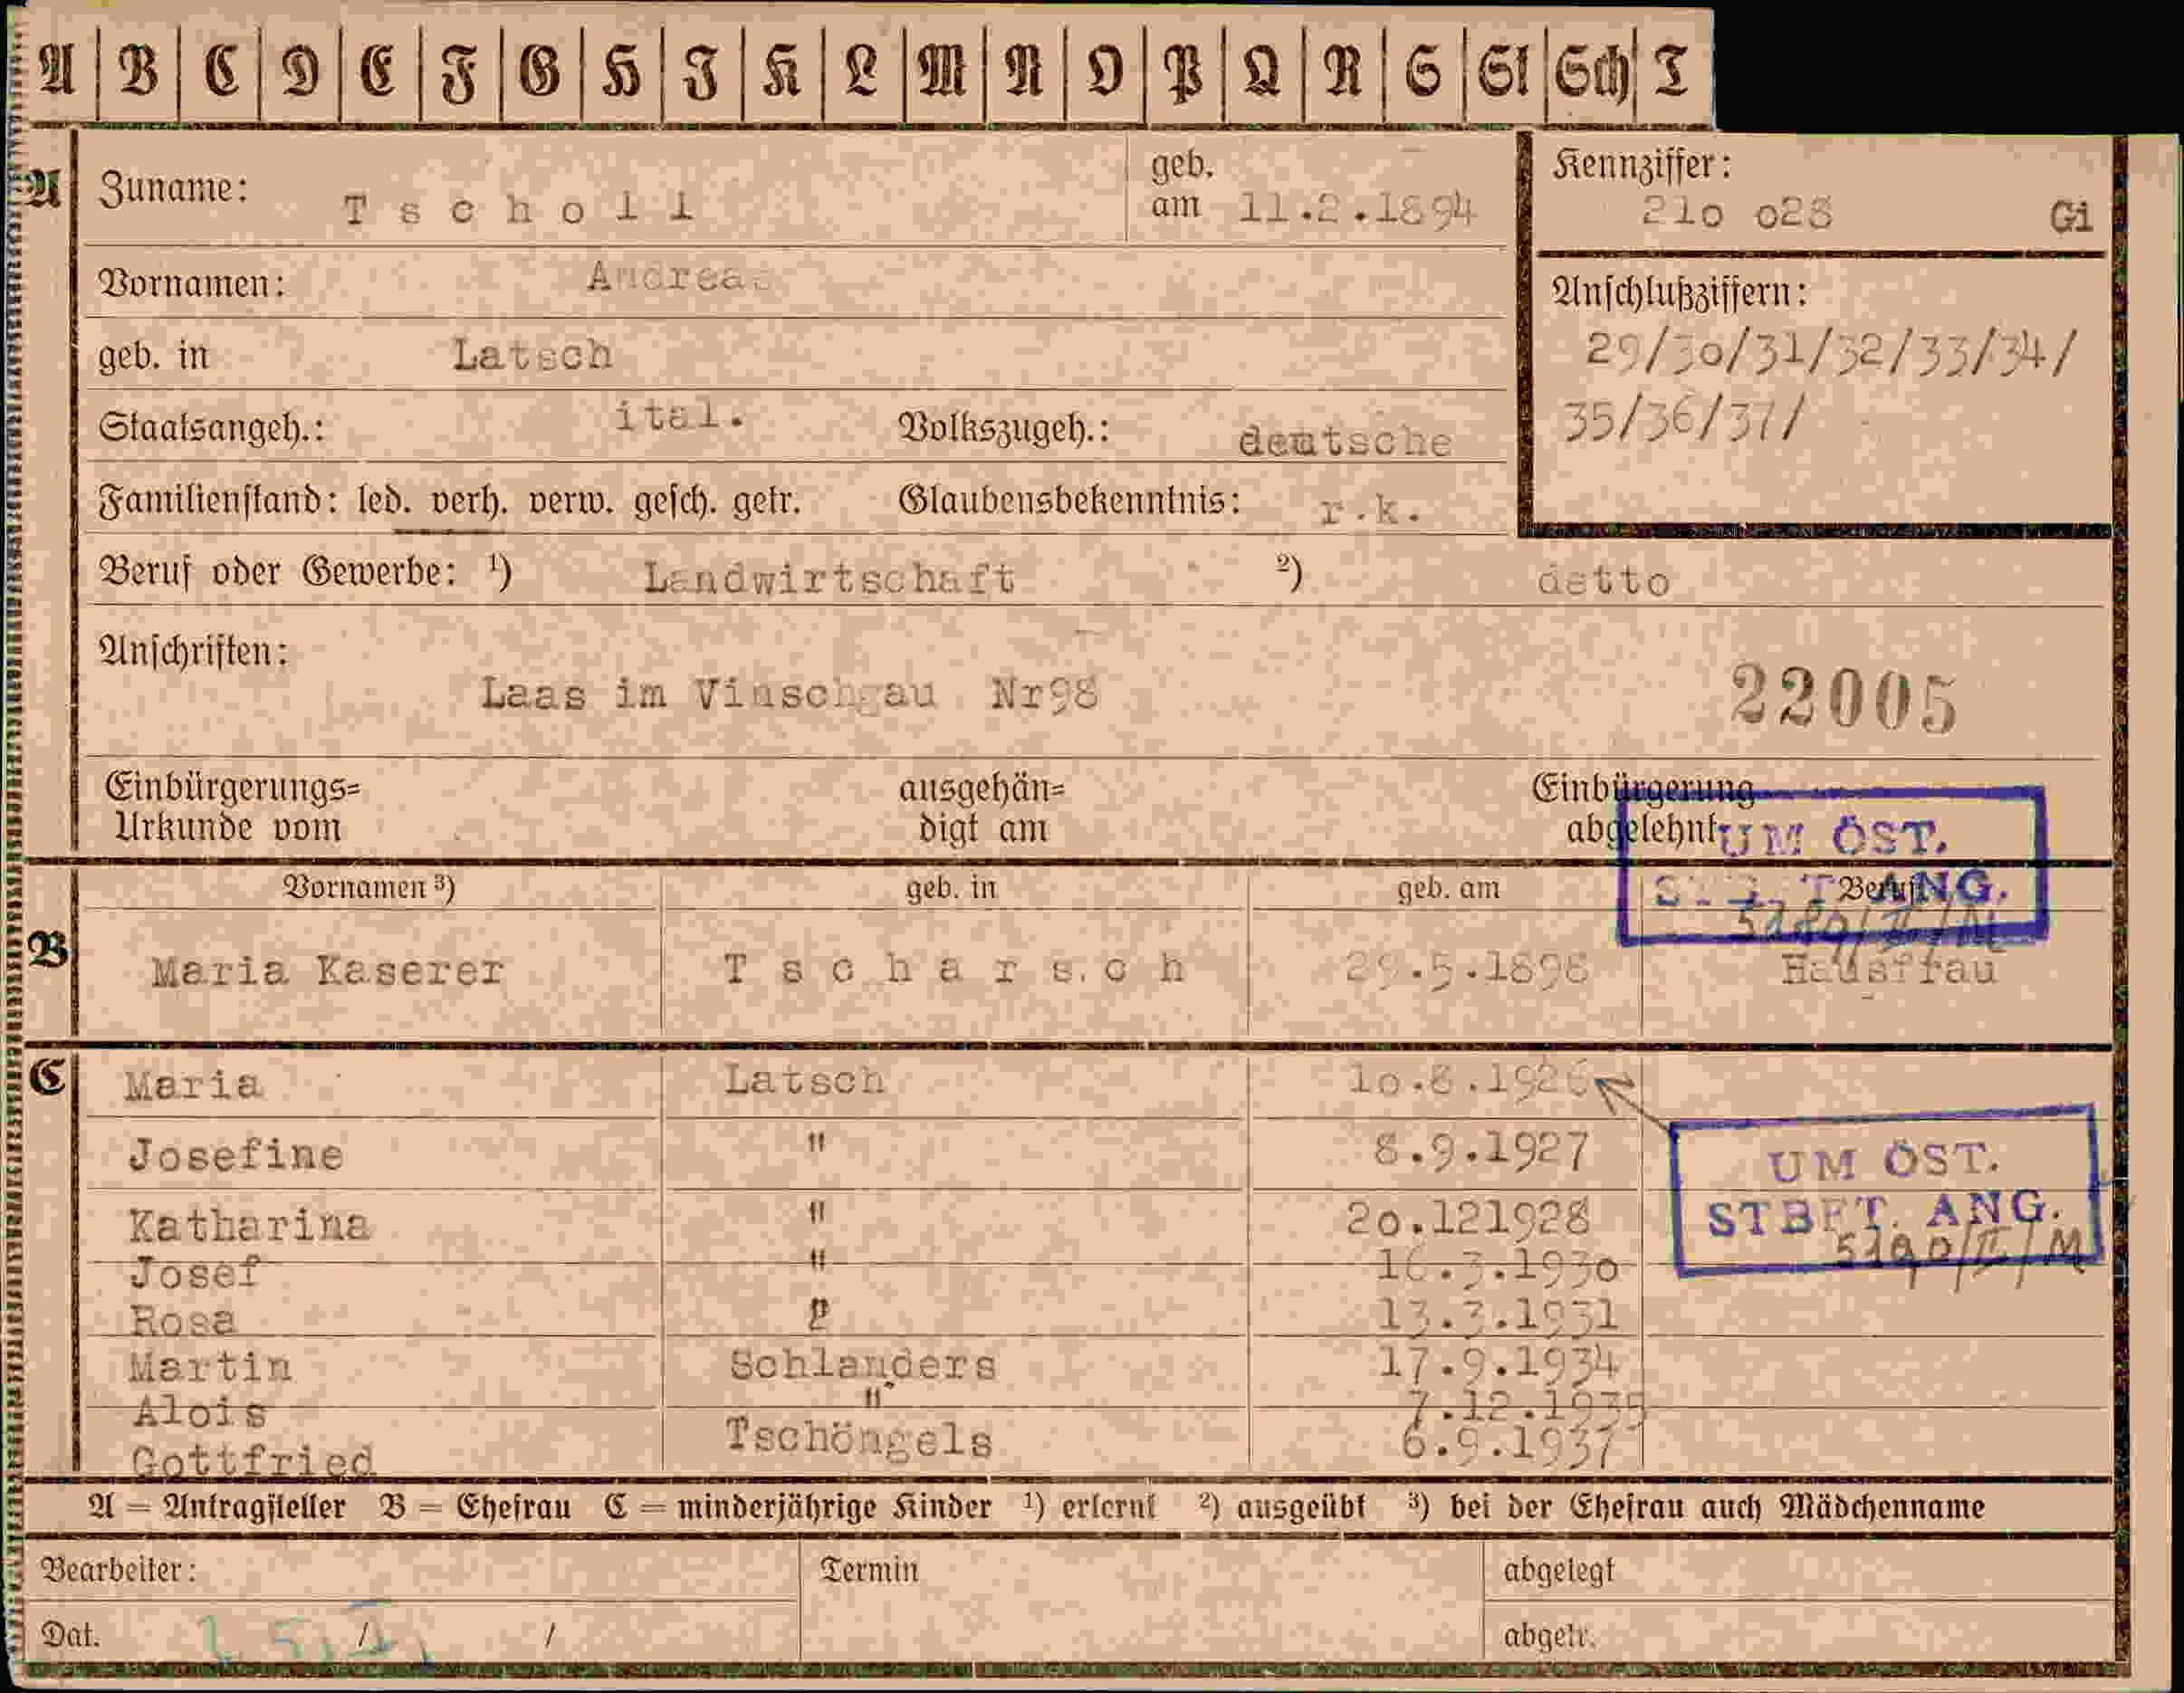 A B C D E F G H I K L M N O P Q R S St Sch T
A Zuname: Tscholl geb. am 11.2.1894 Kennziffer: 21o o28 Gi
Vornamen: Andreas Anschlußziffern:
geb. in Latsch 29/30/31/32/33/34/
Staatsangeh.: ital. Volkszugeh.: deutsche 35/36/37/
Familienstand: led. verh. verw. gesch. getr. Glaubensbekenntnis: r.k.
Beruf oder Gewerbe: ¹) Landwirtschaft ²) detto
Anschriften:
Laas im Vinschgau Nr98 22005
Einbürgerungs= ausgehän= Einbürgerung
Urkunde vom digt am abgelehnt
UM ÖST.
ANG.
Vornamen ³) geb. in geb. am Beruf
B Maria Kaserer Tscharsch 29.5.1898 Hausfrau
C Maria Latsch 1o.8.1926
Josefine " 8.9.1927
UM ÖST.
Katharina " 2o.121928
STBFT. ANG.
5190/II/M
Josef " 16.3.193o
Rosa " 13.3.1931
Martin Schlanders 17.9.1934
Alois " 7.12.1935
Gottfried Tschöngels 6.9.1937
A = Antragsteller B = Ehefrau C = minderjährige Kinder ¹) erlernt ²) ausgeübt ³) bei der Ehefrau auch Mädchenname
Bearbeiter: Termin abgelegt
Dat. / / abgetr.